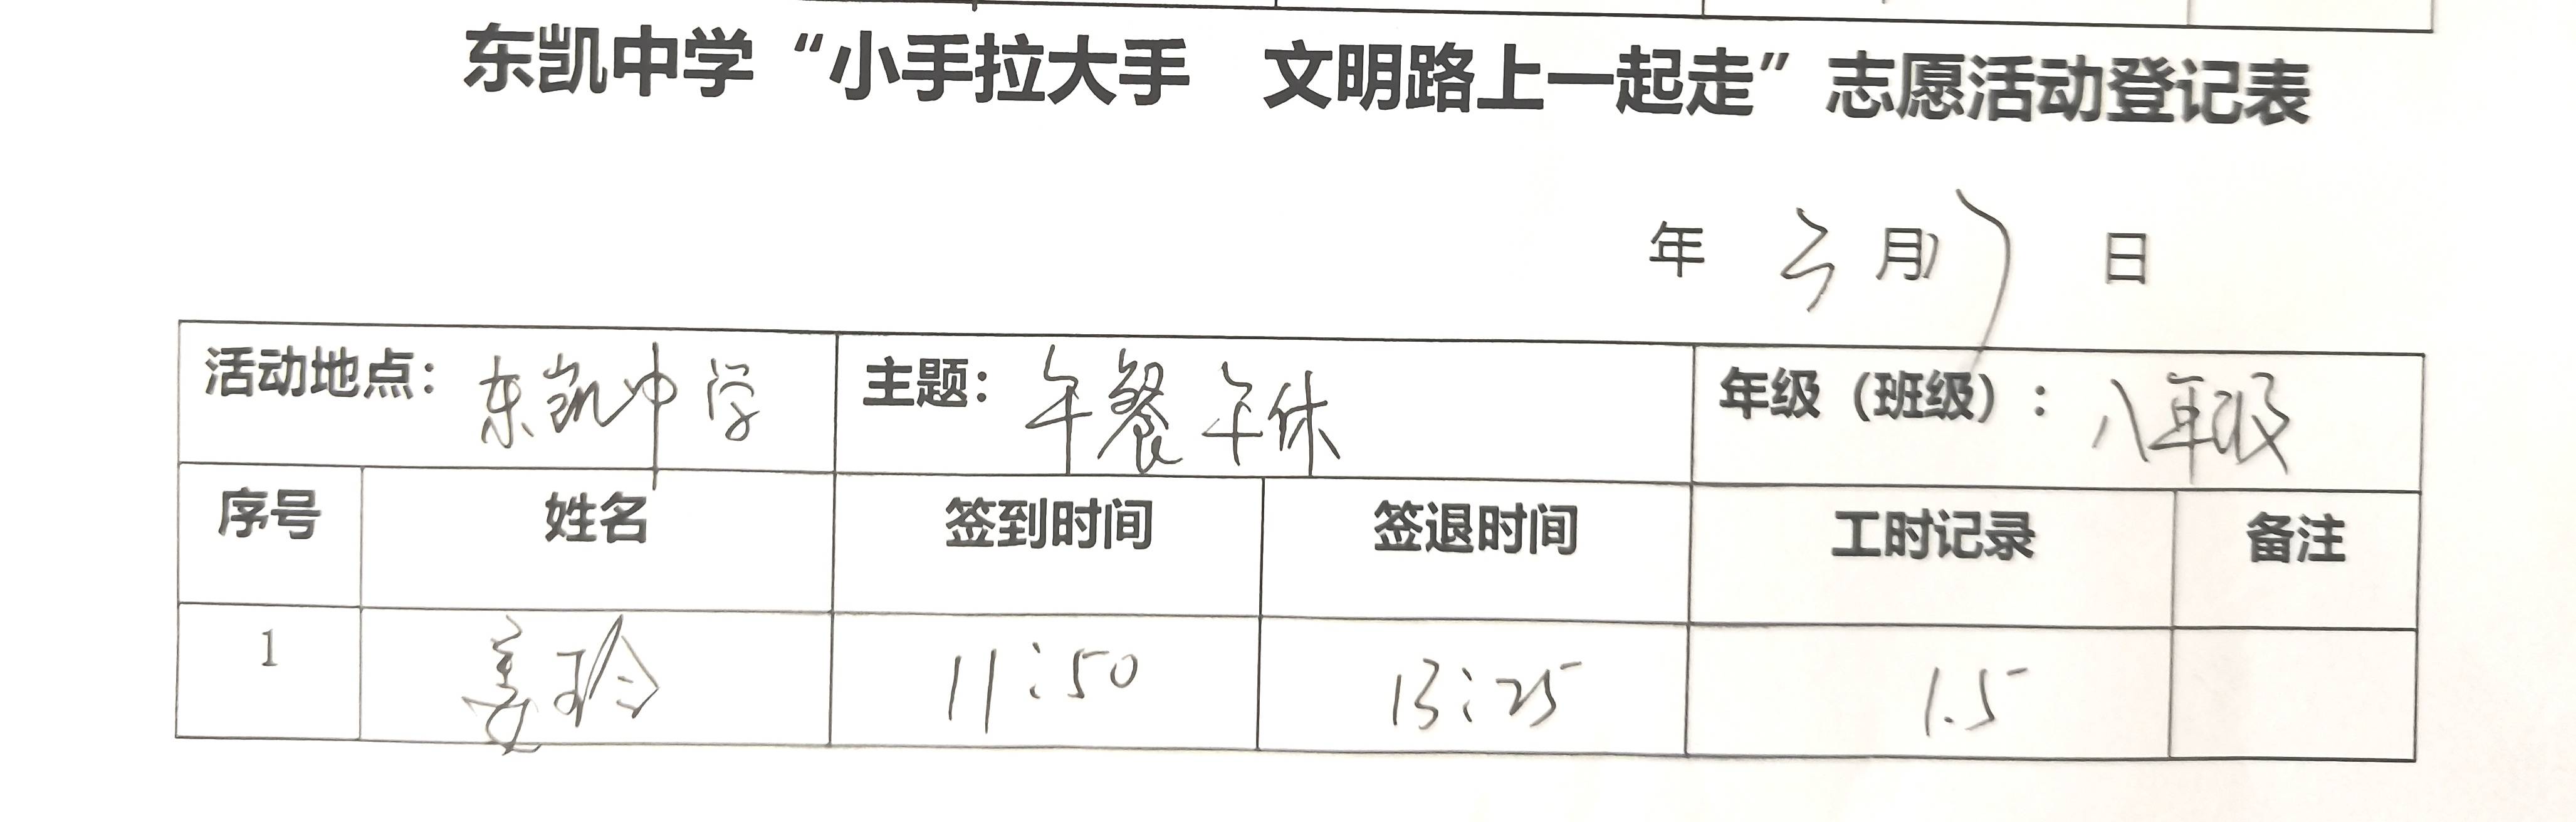 东凯中学“小手拉大手 文明路上一起走”志愿活动登记表
年 3 月 7 日
活动地点：东凯中学 主题：午餐午休 年级（班级）：八年级
序号 姓名 签到时间 签退时间 工时记录 备注
1 姜玲 11:50 13:25 1.5